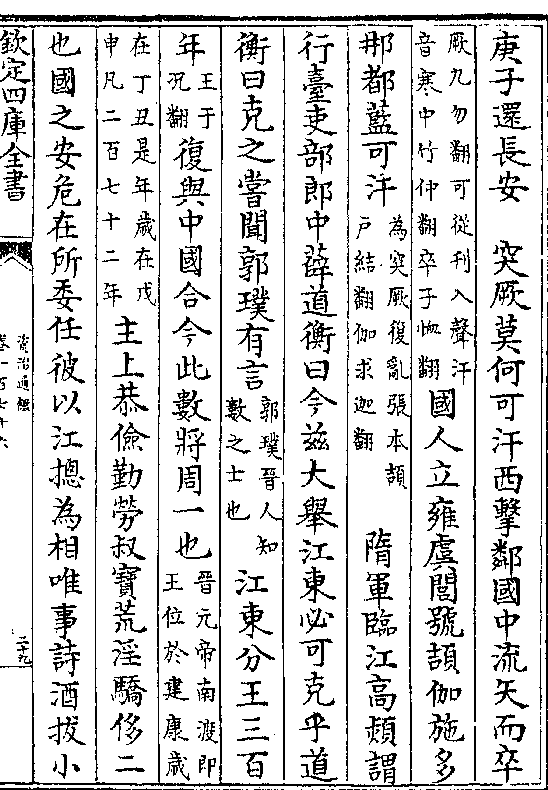 庚子還長安　突厥莫何可汗西擊鄰國中流矢而卒
厥九勿翻可從刋入聲汗
音寒中竹仲翻卒子恤翻
國人立雍虞閭號頡伽施多
那都藍可汗
為突厥復亂張本頡
戶結翻伽求迦翻
隋軍臨江高熲謂
行臺吏部郎中薛道衡曰今兹大舉江東必可克乎道
衡曰克之嘗聞郭璞有言
郭璞晉人知
數之士也
江東分王三百
年
王于
况翻
復與中國合今此數將周一也
晉元帝南渡即
王位於建康歲
在丁丑是年歲在戊
申凡二百七十二年
主上恭儉勤勞叔寶荒淫驕侈二
也國之安危在所委任彼以江摠為相唯事詩酒拔小
欽定四庫全書
資治通鑑
卷一百七十六
二十九